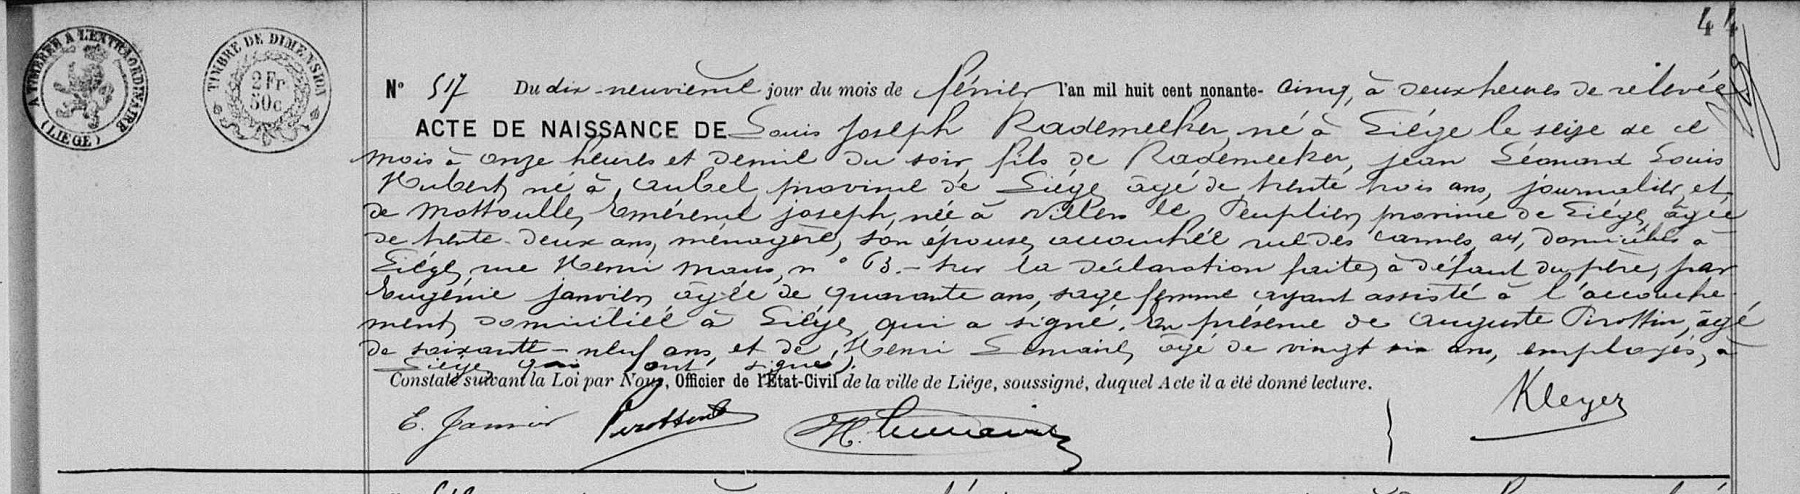 44
A TIMBRER A L'EXTRAORDINAIRE
(LIÉGE)
TIMBRE DE DIMENSION
2 Fr
50c
N° 517 Du dix-neuvième jour du mois de février l'an mil huit cent nonante-cinq, à deux heures de relevée
ACTE DE NAISSANCE DE Louis Joseph Rademecker, né à Liége le seize de ce
mois à onze heures et demie du soir, fils de Rademecker, Jean Léonard Louis
Hubert, né à Aubel, province de Liége, âgé de trente trois ans, journalier, et
de Mottoulle, Emérence Joseph, née à Villers le Peuplier, province de Liége, âgée
de trente-deux ans, ménagère, son épouse, accouchée rue des Carmes, domiciliés à
Liége, rue Henri Maus, n° 13.- Sur la déclaration faite, à défaut du père, par
Eugénie Janvier, âgée de quarante ans, sage femme ayant assisté à l'accouche-
ment, domiciliée à Liége, qui a signé. En présence de Auguste Pirottin, âgé
de soixante-neuf ans, et de Henri Lemaire, âgé de vingt six ans, employés, à
Liége, qui ont signé.
Constaté suivant la Loi par Nous, Officier de l'État-Civil de la ville de Liége, soussigné, duquel Acte il a été donné lecture.
E. Janvier Pirottin H. Lemaire Kleyer